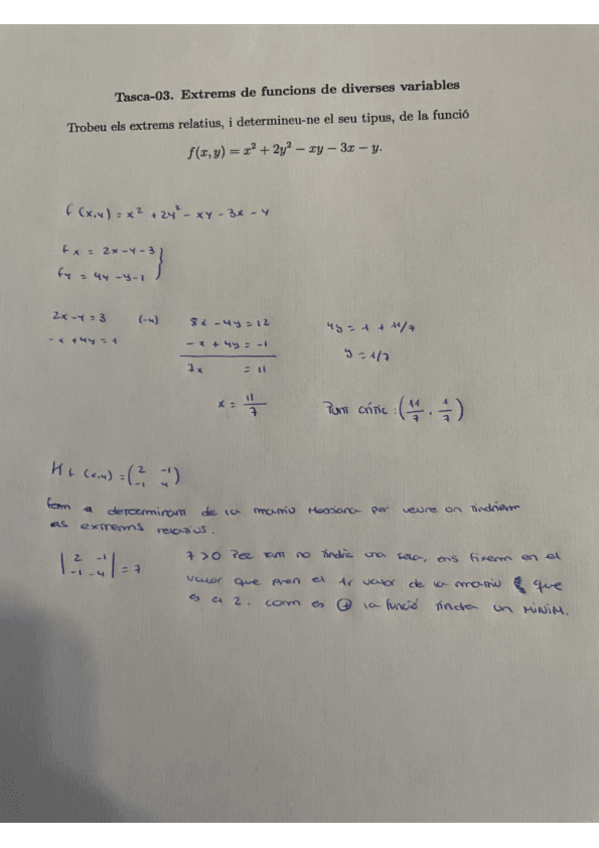 Tasca-03. Extrems de funcions de diverses variables
Trobeu els extrems relatius, i determineu-ne el seu tipus, de la funció
f(x, y) = x² + 2y² − xy − 3x − y.
f (x,y) = x² + 2y² - xy - 3x - y
fx = 2x-y-3 }
fy = 4y -y-1
2x-y=3 (-4) 8x -4y=12 4y = 1 + 11/7
-x +4y=1 -x +4y = -1 y = 1/7
7x = 11
x = 11/7 Punt crític : (11/7 , 1/7)
H f (x,y) = (2 -1
-1 4)
fem a determinant de la matriu Hessiana per veure on tindriem
as extrems relatius.
|2 -1
-1 -4| = 7 7>0 Per tant no tindrà una sela, ens fixem en el
valor que pren el 1r valor de la matriu que
és el 2. com es ⊕ la funció tindrà un MÍNIM.